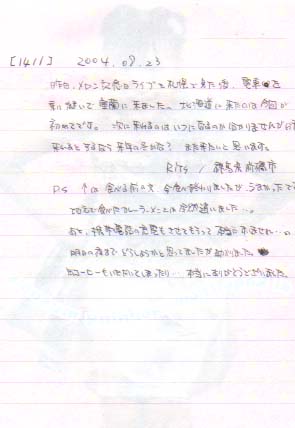 [1411] 2004.09.23
昨日、メロン記念日ライブを札幌で見た後、電車を
乗り継いで室蘭に来ました。北海道に来たのは今回が
初めてです。次に来れるのはいつになるのか分かりませんが
来るとするなら来年の冬かな? また来たいと思います。
Rits / 群馬県前橋市
P.S ↑は食べる前の文 今食べ終わりましたが、うまかったです
で食べたカレーラーメンとは全然違いました…。
あと、携帯電話の充電もさせてもらって本当にすみません…。
明日の夜までどうしようかと思ってましたが助かりました。
コーヒーもいただいてしまったり… 本当にありがとうございました。